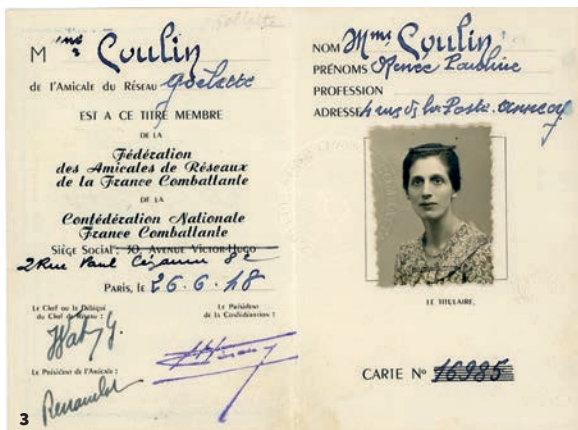 Goëlette
Mme Coulin
de l'Amicale du Réseau Goëlette
EST A CE TITRE MEMBRE
DE LA
Fédération
des Amicales de Réseaux
de la France Combattante
DE LA
Confédération Nationale
France Combattante
SIÈGE SOCIAL : 30, AVENUE VICTOR-HUGO
2 Rue Paul Cézanne 8e
PARIS, le 26.6.48
Le Chef ou le Délégué
du Chef de Réseau :
Le Président
de la Confédération :
Le Président de l'Amicale :
3
NOM Mme Coulin
PRÉNOMS Renée Pauline
PROFESSION
ADRESSE 4 rue de la Poste. Annecy
LE TITULAIRE,
CARTE No 16985